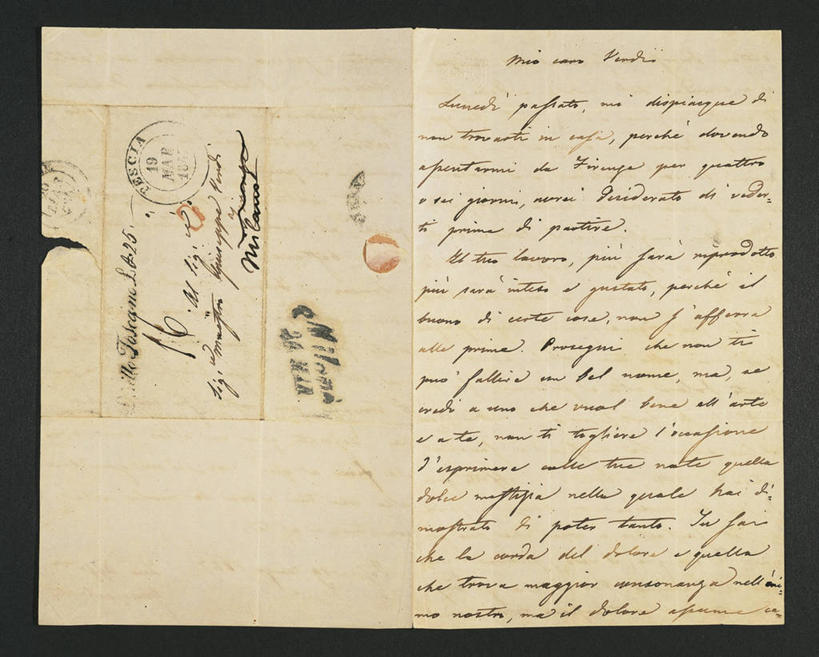 Mio caro Verdi
Lunedì passato, mi dispiacque di
non trovarti in casa, perchè dovendo
assentarmi da Firenze per quattro
o sei giorni, avrei desiderato di veder-
ti prima di partire.
Il tuo lavoro, più sarà riprodotto
più sarà inteso e gustato, perchè il
buono di certe cose, non s'afferra
alle prime. Prosegui che non ti
può fallire un bel nome, ma, se
credi a uno che vuol bene all'arte
e a te, non ti togliere l'occasione
d'esprimere colle tue note quella
dolce mestizia nella quale hai di-
mostrato di poter tanto. Tu sai
che la corda del dolore è quella
che trova maggior consonanza nell'ani-
mo nostro, ma il dolore assume ca-
PESCIA
19
MAR
Al Sig.e
Sig.e Maestro Giuseppe Verdi
Milano
Milano
MAR